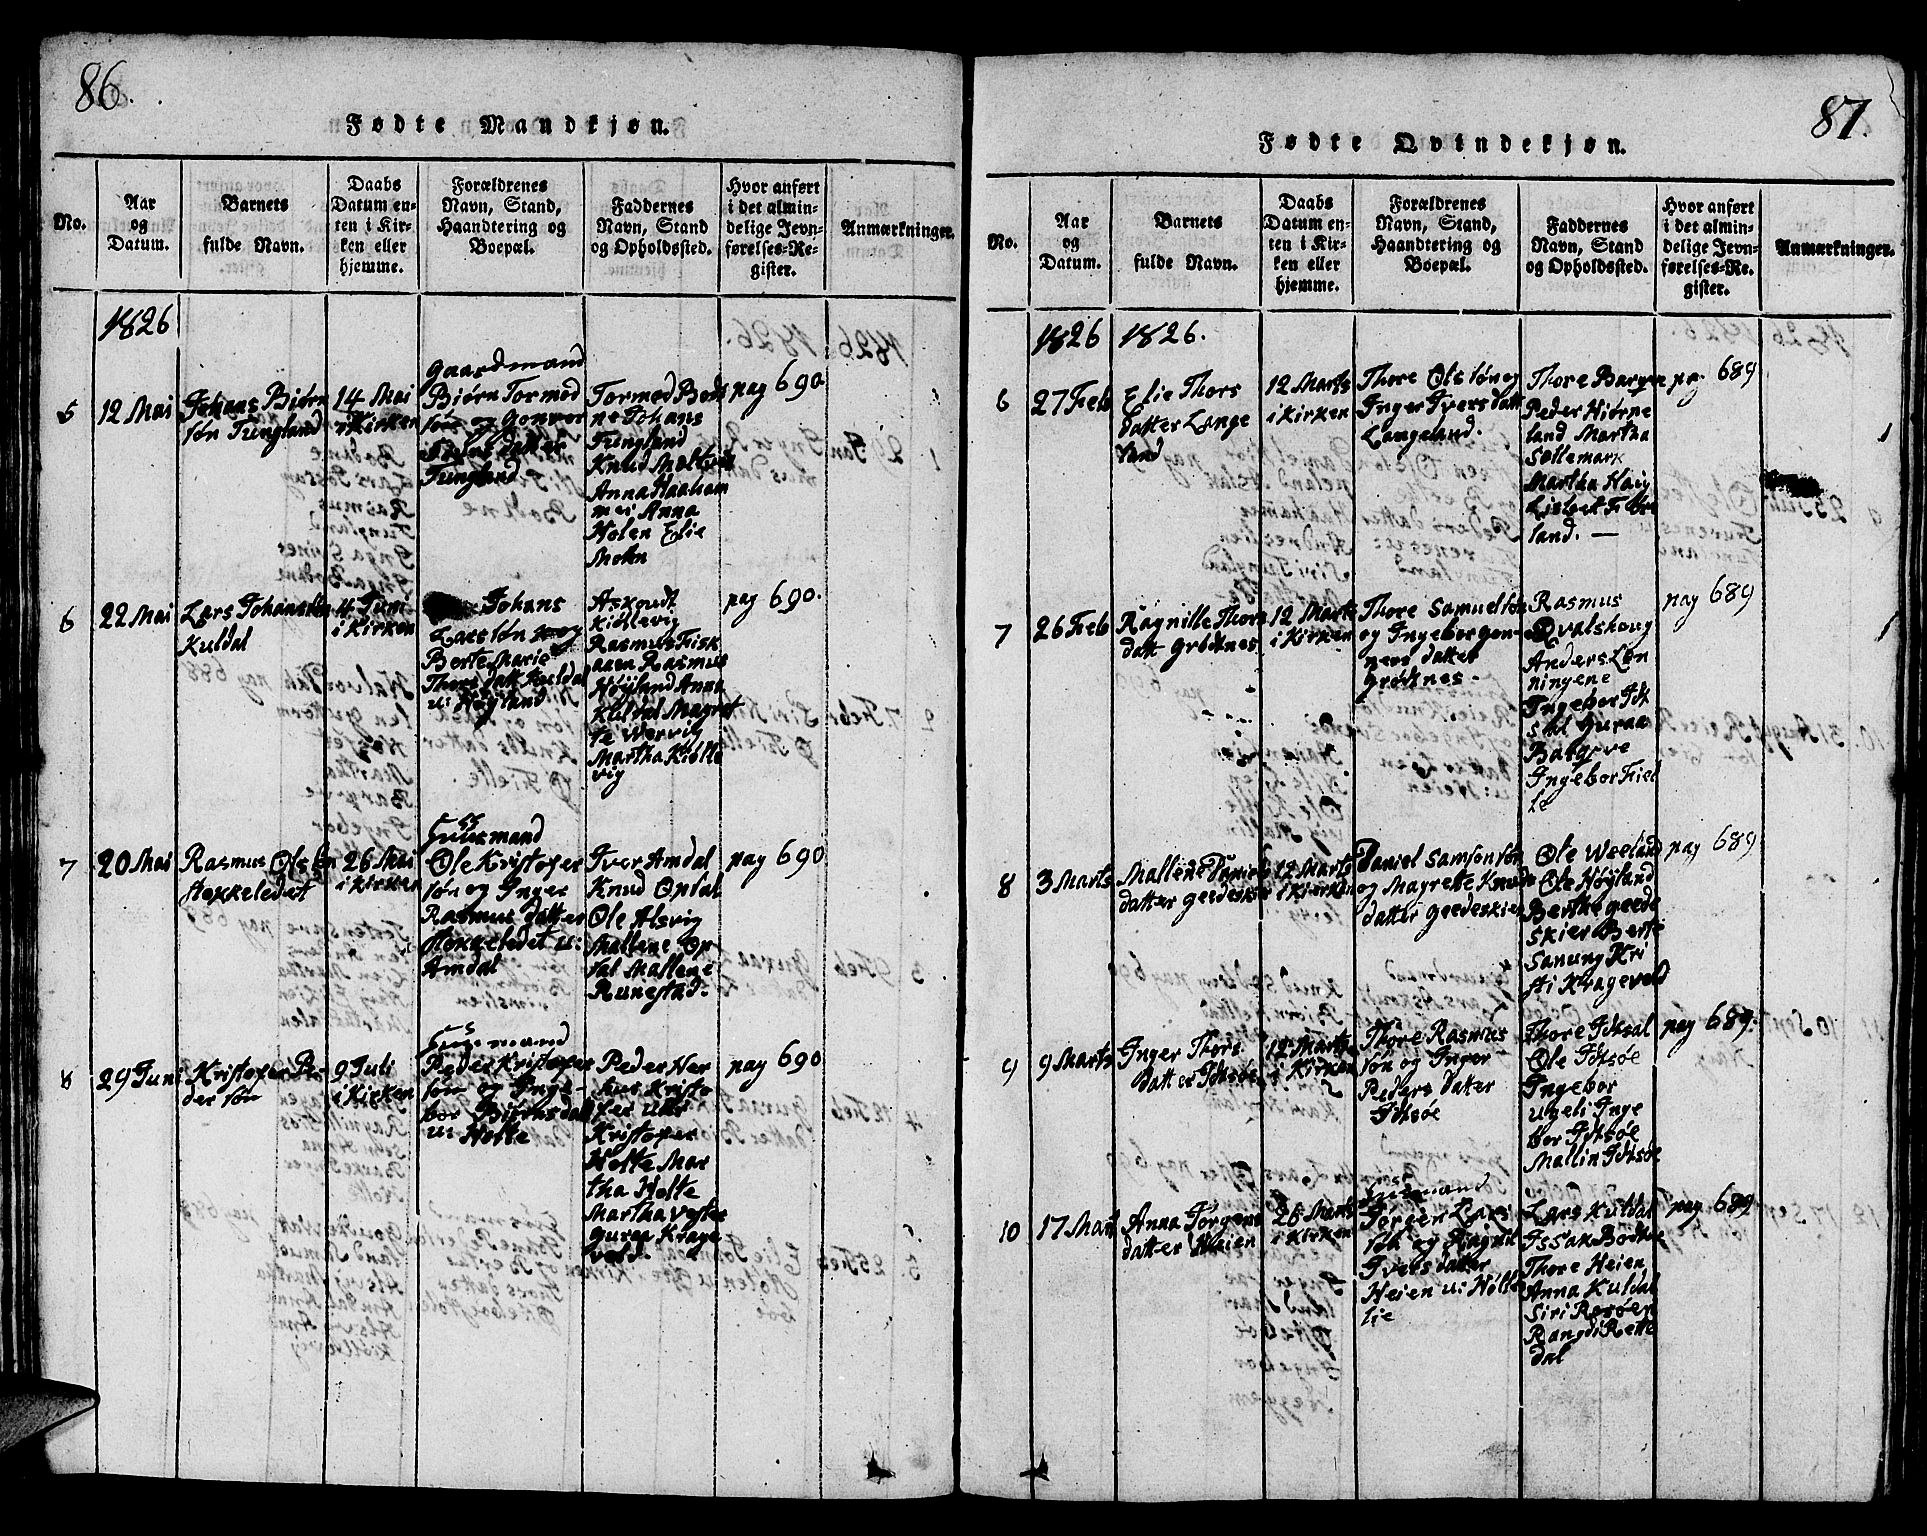 86.
Fødte Mandkjøn.
No.
Aar
og
Datum.
Barnets
fulde Navn.
Daabs
Datum en-
ten i Kir-
ken eller
hjemme.
Forældrenes
Navn, Stand,
Haandtering og
Boepæl.
Faddernes
Navn, Stand
og Opholdssted.
Hvor anført
i det almin-
delige Jevn-
førelses-Re-
gister.
Anmærkninger.
1826
5
12 Mai
Johans Biørn
søn Tungland
14 Mai
i Kirken
Gaardmand
Biørn Tormod
søn og Gonvor
datter
Tungland
Tormod Bodi
ne Johans
Tungland
Knud Moltvig
Anna Haaham
mer Anna
Holen Elie
Mohn
pag 690.
6
22 Mai
Lars Johansøn
Kuldal
4 Juni
i Kirken
Johans
Larssøn og
Berte Marie
Thors datt Kuldal
u: Høyland
Askoudt
Kidlevig
Rasmus Fisk
aaen Rasmus
Høyland Anna
Kuldal Magret
te Wervig
Martha Kidle
vig
pag 690.
7
20 Mai
Rasmus Olssøn
støkkeledet
26 Mai
i Kirken
Huusmand
Ole Kristofer
søn og Inger
Rasmus datter
støkkeledet u:
Amdal
Iver Amdal
Knud Opdal
Ole Alsvig
Mallene Op
dal Mallene
Runestad.
pag 690
8
29 Juni
Kristofer Pe-
der søn
9 Juli
i Kirken
Huusmand
Peder Kristofer
søn og Inge-
bor Biørnsdatt
u: Holte
Peder Her
Kristo
fer
Kristofer
Holte Mar
tha Holte
Martha Vester
Guraa Krage
vold.
pag 690
87.
Fødte Qvindekjøn.
No.
Aar
og
Datum.
Barnets
fulde Navn.
Daabs
Datum en-
ten i Kir-
ken eller
hjemme.
Forældrenes
Navn, Stand,
Haandtering og
Boepæl.
Faddernes
Navn, Stand
og Opholdssted.
Hvor anført
i det almin-
delige Jevn-
førelses-Re-
gister.
Anmærkninger.
1826
1826.
6
27 Feb
Elie Thors
datter Lange
land
12 Marts
i Kirken
Thore Olssøn og
Inger Ivers datt
Langeland.
Thore Bargen
Peder Hiørne
land Martha
Sællemark
Martha Haig
Lisbet
land. —
pag 689
7
26 Feb
Ragnille Thors
datt Grødnes
12 Marts
i Kirken
Thore Samuelsøn
og Ingebor Gon-
ners datter
Grødnes.
Rasmus
Qvalshoug
Anders Løn
ningene
Ingebor Id
sal Guraa
Bargeve
Ingebor Fiel
le
pag 689
8
3 Marts
Mallene Daniels
datter Geedeskier
12 Marts
i Kirken
Daniel Samsonsøn
og Magrette Knuds
datter Geedeskier
Ole Weeland
Ole Høyland
Berthe Geede
skier Berte
Sanung Kri
sti Kragevold
pag 689
9
9 Marts
Inger Thors
datter Idsøe
12 Marts
i Kirken
Thore Rasmus
søn og Inger
Peders datter
Idsøe
Thore Idsal
Ole Idsøe
Ingebor
Ugeli Inge
bor Idsøe
Mallin Idsøe
pag 689.
10
17 Mart
Anna Jørgens
datter Heien
26 Marts
i Kirken
Huusmand
Jørgen Lars
søn og Ragnil
Ivers datter
Heien u: Holte
lie
Lars Kuldal
Issak Bodne
Thore Heien
Anna Kuldal
Siri Rosøen
Rangdi Rette
dal
pag 689